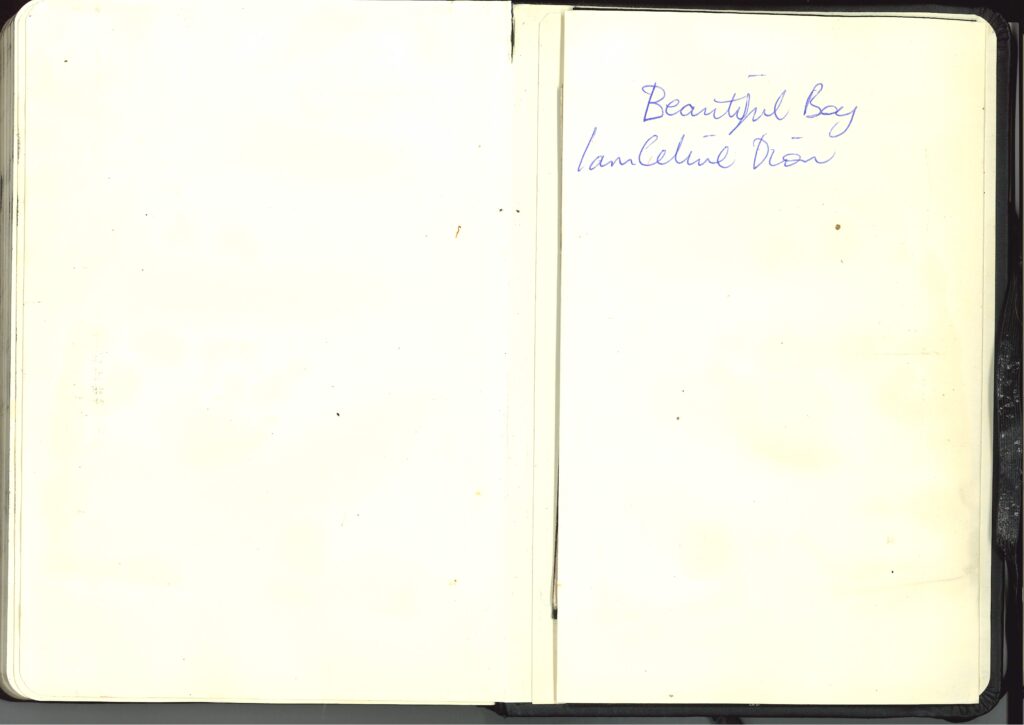 Beautiful Boy
I am Celine Dion